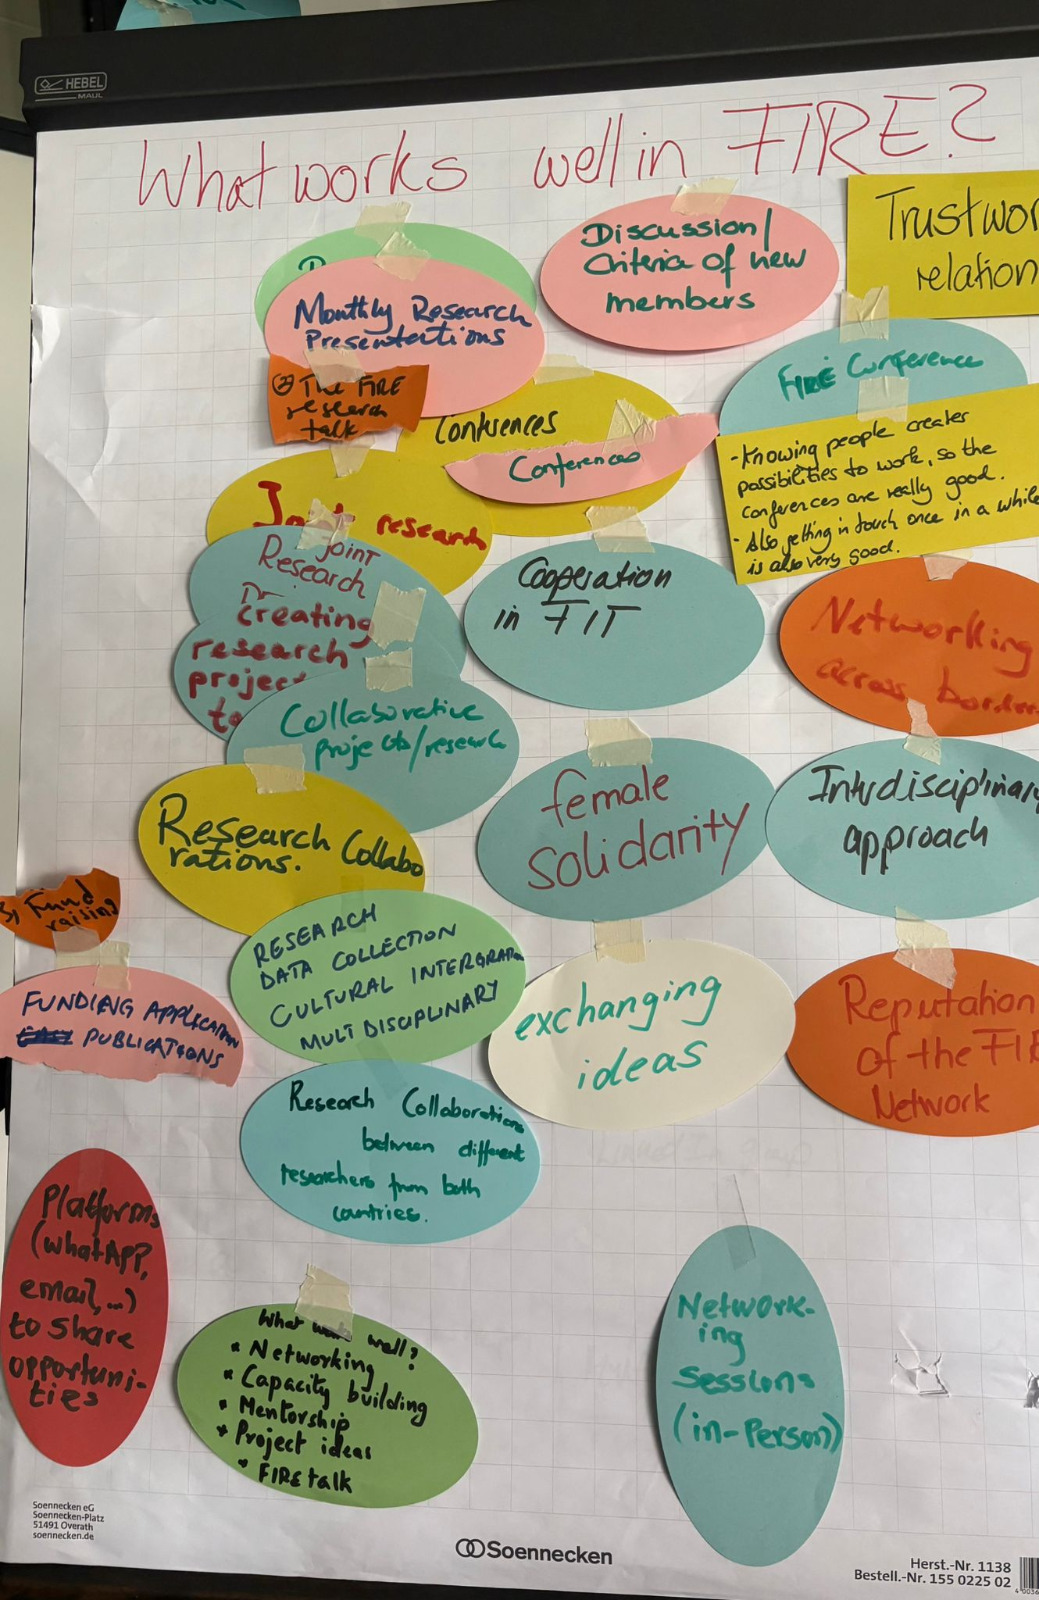 HEBEL
MAUL
What works well in FIRE?
Discussion/
Criteria of new
members
Trustwor
relation
Monthly Research
Presentations
② The FIRE
research
talk
Conferences
Conferences
FIRE Conference
- Knowing people creates
possibilities to work, so the
conferences are really good.
- Also getting in touch once in a while
is also very good.
Joint research
Joint
Research
creating
research
project
to
Collaborative
projects/research
Cooperation
in FIT
Networking
across border
Research Collabo
rations.
female
solidarity
Interdisciplinary
approach
3) Fund
raising
FUNDING APPLICATION
PUBLICATIONS
RESEARCH
DATA COLLECTION
CULTURAL INTERGRATION
MULTIDISCIPLINARY
exchanging
ideas
Reputation
of the FIRE
Network
Research Collaborations
between different
researchers from both
countries.
Platforms
(whatAPP,
email,...)
to share
opportuni-
ties
What works well?
* Networking
* Capacity building
* Mentorship
* Project ideas
* FIRE talk
Network-
ing
sessions
(in-Person)
Soennecken eG
Soennecken-Platz
51491 Overath
soennecken.de
Soennecken
Herst.-Nr. 1138
Bestell.-Nr. 155 0225 02